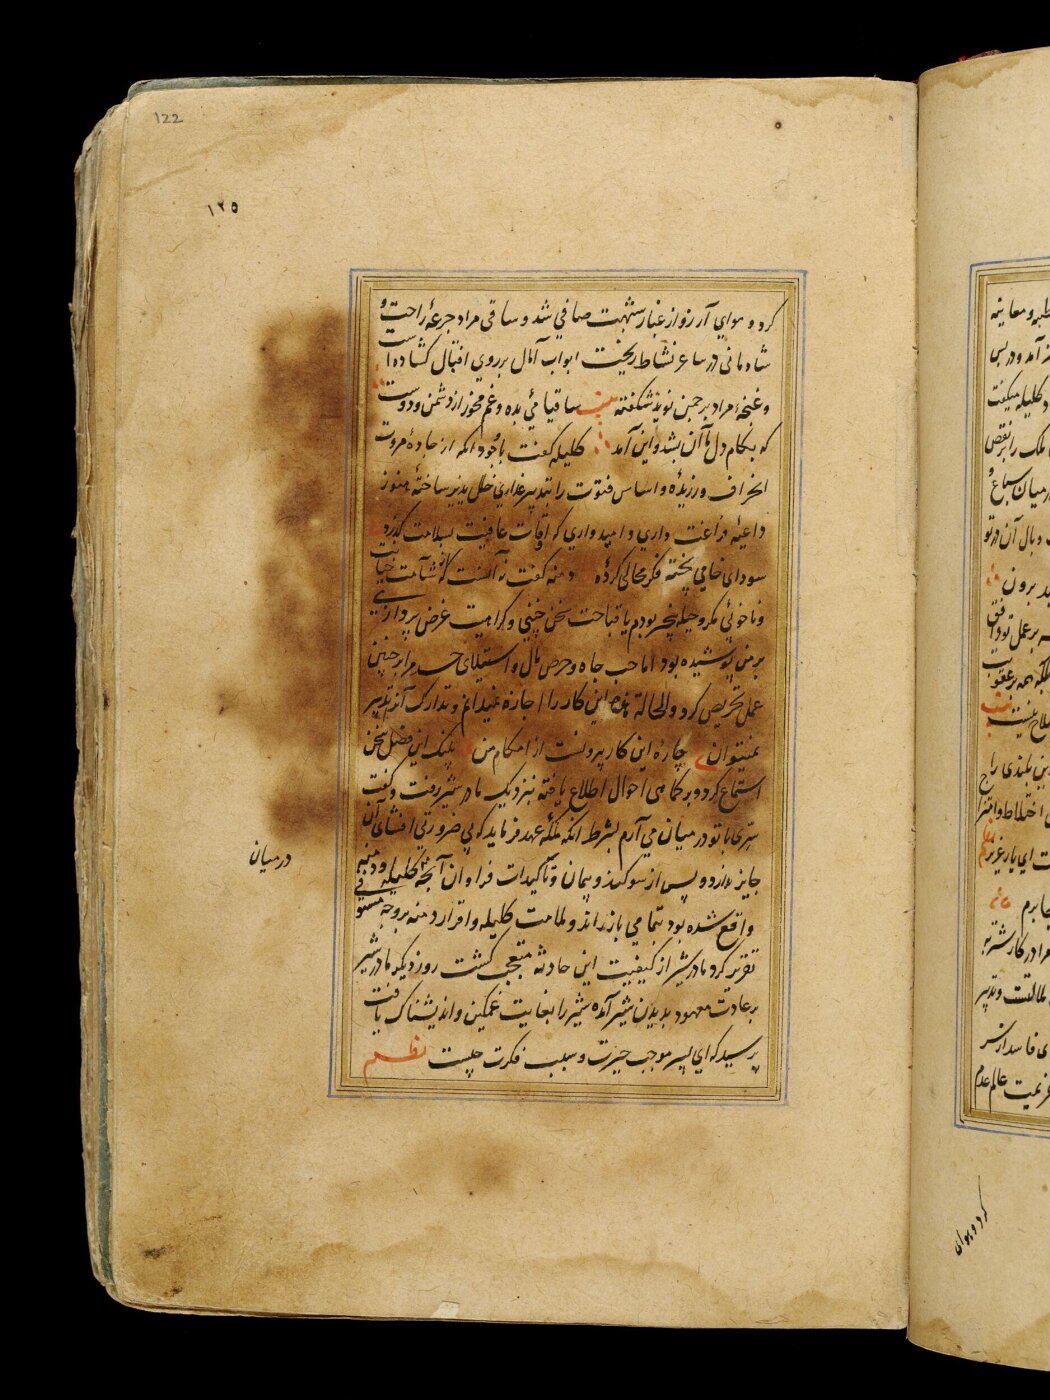 122
۱۲۵
کرد و هوای آرزو از غبار شبهت صافی شد و ساقی مراد جرعهٔ راحت و
شادمانی در ساغر نشاط ریخت ابواب آمال بر روی اقبال کشاده است
و غنچهٔ مراد بر چمن نوید شکفته بیت ساقیا می بده و غم مخور از دشمن و دوست
که بکام دل ما آن بشد و این آمد کلیله کفت باوجود آنکه از جادهٔ مروت
انحراف ورزیدهٔ و اساس فتوت را بتدبیر غداری خلل پذیر ساختهٔ هنوز
داعیهٔ فراغت داری و امیدواری که اوقات عافیت بسلامت کذرد
سودای خامی پختهٔ فکر محالی کردهٔ دمنه کفت نه آنست که از شآمت خیانت
و ناخوبی مکر و حیله بیخبر بودم یا قباحت سخن چینی و کراهیت غرض پردازی
بر من پوشیده بود اما حب جاه و حرص مال و استیلای حسد مرا بر چنین
عمل تحریص کرد والحالة هذه این کار را اجازه نمیدانم و تدارک آنرا تدبیر
نمیتوان چارهٔ این کار بیرونست از احکام من پلنک این فصل سخن
استماع کرد و بر تمامی احوال اطلاع یافته بنزدیک مادر شیر رفت و کفت
سری با تو در میان می آرم بشرط آنکه ملکه عهد فرماید که بی ضرورتی افشای آن
جایز ندارد و پس از سوکند و پیمان و تأکیدات فراوان آنچه کلیله و دمنه
واقع شده بود بتمامی باز راند و ملامت کلیله و اقرار دمنه بر وجه مستوفی
تقریر کرد مادر شیر از کیفیت این حادثه متعجب کشت روز دیکر مادر شیر
بر عادت معهود بدیدن شیر آمده شیر را بغایت غمکین و اندیشناک یافت
پرسید که ای پسر موجب حیرت و سبب فکرت چیست نظم
درمیان
کرد و هوای